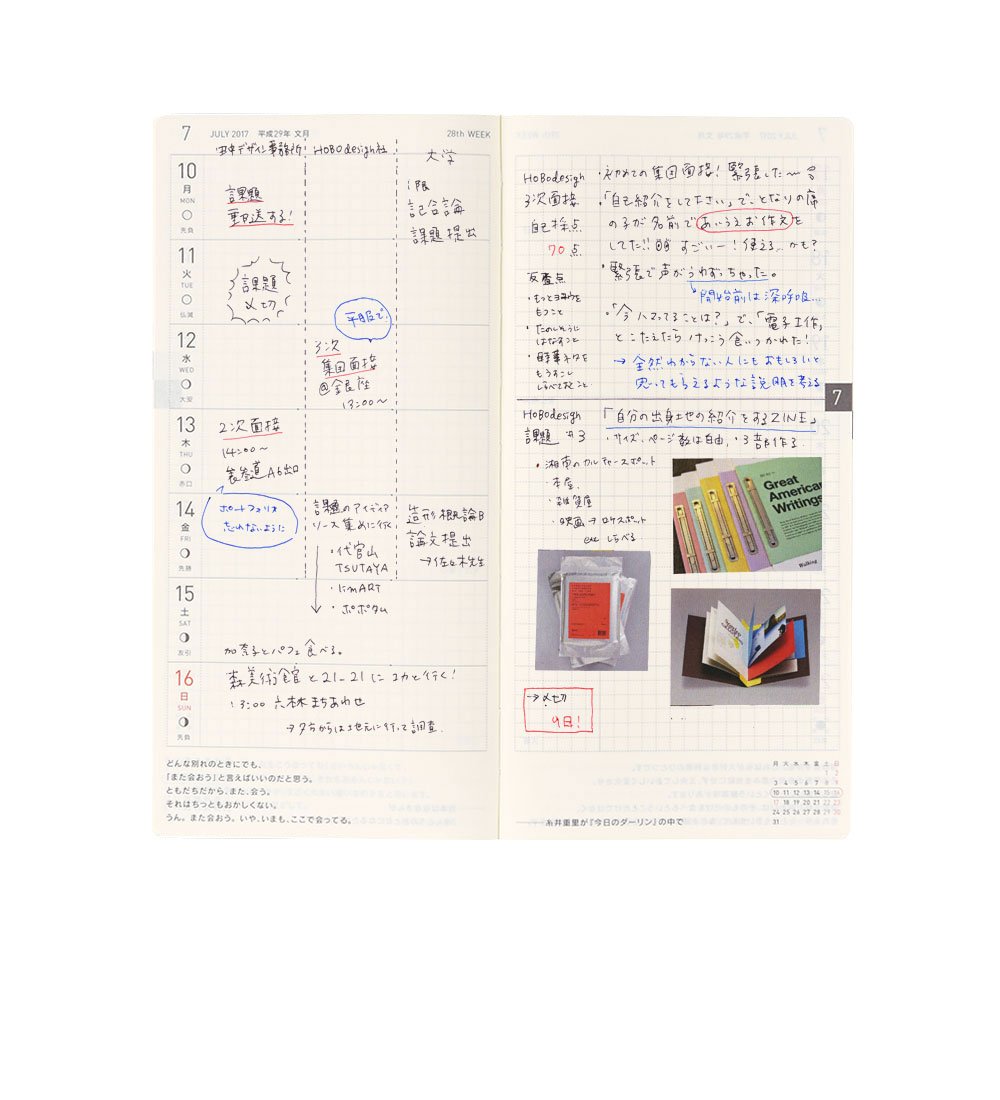 7 JULY 2017 平成29年 文月 28th WEEK
デザイン事務所 HOBOdesign社 大学
10
月
MON
先負
課題
郵送する!
1限
記号論
課題提出
11
火
TUE
仏滅
課題
〆切
12
水
WED
大安
平服で!
3次
集団面接
@銀座
13:00〜
13
木
THU
赤口
2次面接
14:00〜
表参道A6出口
14
金
FRI
先勝
ポートフォリオ
忘れないように
課題のアイディア
ソース集めに行く
・代官山
TSUTAYA
・limART
・ポポタム
造形概論B
論文提出
→佐々木先生
15
土
SAT
友引
加奈子とパフェ食べる。
16
日
SUN
先負
森美術館と21_21にユカと行く!
13:00 六本木まちあわせ
→夕方からは地元に行って調査
どんな別れのときにでも、
「また会おう」と言えばいいのだと思う。
ともだちだから、また、会う。
それはちっともおかしくない。
うん。また会おう。いや、いまも、ここで会ってる。
HOBOdesign
3次面接
自己採点
70点
反省点
・もっとヨユウを
もつこと
・たのしそうに
はなすこと
・時事ネタを
もうすこし
しらべておくこと
・初めての集団面接!緊張した〜
・「自己紹介をして下さい」で、となりの席
の子が名前であいうえお作文を
してた!! すごいー!使える…かも?
・緊張で声がうわずっちゃった。
開始前は深呼吸…
・「今ハマってることは?」で、「電子工作」
とこたえたらけっこう食いつかれた!
→全然わからない人にもおもしろいと
思ってもらえるような説明を考える
7
HOBOdesign
課題 #3
「自分の出身地の紹介をするZINE」
・サイズ、ページ数は自由、・3部作る
・湘南のカルチャースポット
・本屋、
・雑貨屋
・映画→ロケスポット
etc しらべる
Great
American
Writings
Walking
→〆切
9日!
月 火 水 木 金 土 日
1 2
3 4 5 6 7 8 9
10 11 12 13 14 15 16
17 18 19 20 21 22 23
24 25 26 27 28 29 30
31
糸井重里が『今日のダーリン』の中で